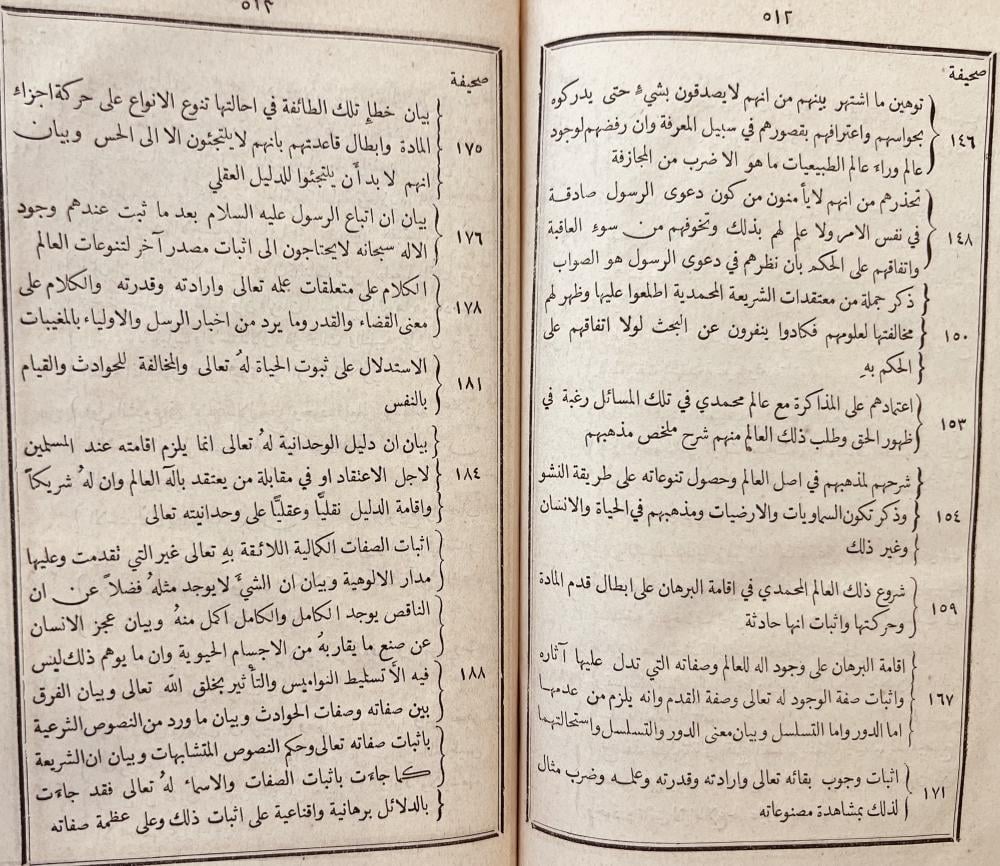 ٥١٢
صحيفة
توهين ما اشتهر بينهم من انهم لا يصدقون بشيءٍ حتى يدركوه
١٤٦ بحواسهم واعترافهم بقصورهم في سبيل المعرفة وان رفضهم لوجود
عالم وراء عالم الطبيعيات ما هو الا ضرب من المجازفة
تحذرهم من انهم لا يأمنون من كون دعوى الرسول صادقة
١٤٨ في نفس الامر ولا علم لهم بذلك وتخوفهم من سوءِ العاقبة
واتفاقهم على الحكم بأن نظرهم في دعوى الرسول هو الصواب
ذكر جملة من معتقدات الشريعة المحمدية اطلعوا عليها وظهر لهم
١٥٠ مخالفتها لعلومهم فكادوا ينفرون عن البحث لولا اتفاقهم على
الحكم بهِ
اعتمادهم على المذاكرة مع عالم محمدي في تلك المسائل رغبة في
١٥٣ ظهور الحق وطلب ذلك العالم منهم شرح ملخص مذهبهم
شرحهم لمذهبهم في اصل العالم وحصول تنوعاته على طريقة النشو
١٥٤ وذكر تكون السماويات والارضيات ومذهبهم في الحياة والانسان
وغير ذلك
١٥٩ شروع ذلك العالم المحمدي في اقامة البرهان على ابطال قدم المادة
وحركتها واثبات انها حادثة
اقامة البرهان على وجود اله للعالم وصفاته التي تدل عليها آثاره
١٦٧ واثبات صفة الوجود له تعالى وصفة القدم وانه يلزم من عدمها
اما الدور واما التسلسل وبيان معنى الدور والتسلسل واستحالتهما
١٧١ اثبات وجوب بقائه تعالى وارادته وقدرته وعلمه وضرب مثال
لذلك بمشاهدة مصنوعاته
صحيفة
بيان خطإِ تلك الطائفة في احالتها تنوع الانواع على حركة اجزاءِ
١٧٥ المادة وابطال قاعدتهم بانهم لا يلتجئون الا الى الحس وبيان
انهم لا بد أن يلتجئوا للدليل العقلي
١٧٦ بيان ان اتباع الرسول عليه السلام بعد ما ثبت عندهم وجود
الاله سبحانه لا يحتاجون الى اثبات مصدر آخر لتنوعات العالم
١٧٨ الكلام على متعلقات علمه تعالى وارادته وقدرته والكلام على
معنى القضاء والقدر وما يرد من اخبار الرسل والاولياء بالمغيبات
١٨١ الاستدلال على ثبوت الحياة لهُ تعالى والمخالفة للحوادث والقيام
بالنفس
بيان ان دليل الوحدانية لهُ تعالى انما يلزم اقامته عند المسلمين
١٨٤ لاجل الاعتقاد او في مقابلة من يعتقد بألَه العالم وان لهُ شريكاً
واقامة الدليل نقليًّا وعقليًّا على وحدانيته تعالى
اثبات الصفات الكمالية اللائقة بهِ تعالى غير التي تقدمت وعليها
مدار الالوهية وبيان ان الشيَّ لا يوجد مثلهُ فضلاً عن ان
الناقص يوجد الكامل والكامل اكمل منهُ وبيان عجز الانسان
عن صنع ما يقاربهُ من الاجسام الحيوية وان ما يوهم ذلك ليس
١٨٨ فيه الأ تسليط النواميس والتأثير بخلق الله تعالى وبيان الفرق
بين صفاته وصفات الحوادث وبيان ما ورد من النصوص الشرعية
باثبات صفاته تعالى وحكم النصوص المتشابهات وبيان ان الشريعة
كما جاءَت باثبات الصفات والاسماء لهُ تعالى فقد جاءَت
بالدلائل برهانية واقناعية على اثبات ذلك وعلى عظمة صفاته